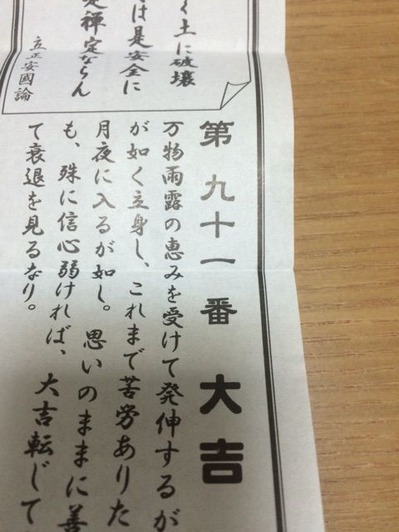 く土に破壊
は是安全に
是禅定ならん
立正安國論
第九十一番 大吉
万物雨露の恵みを受けて発伸するが
が如く立身し、これまで苦労ありた
月夜に入るが如し。思いのままに善
も、殊に信心弱ければ、大吉転じて
て衰退を見るなり。